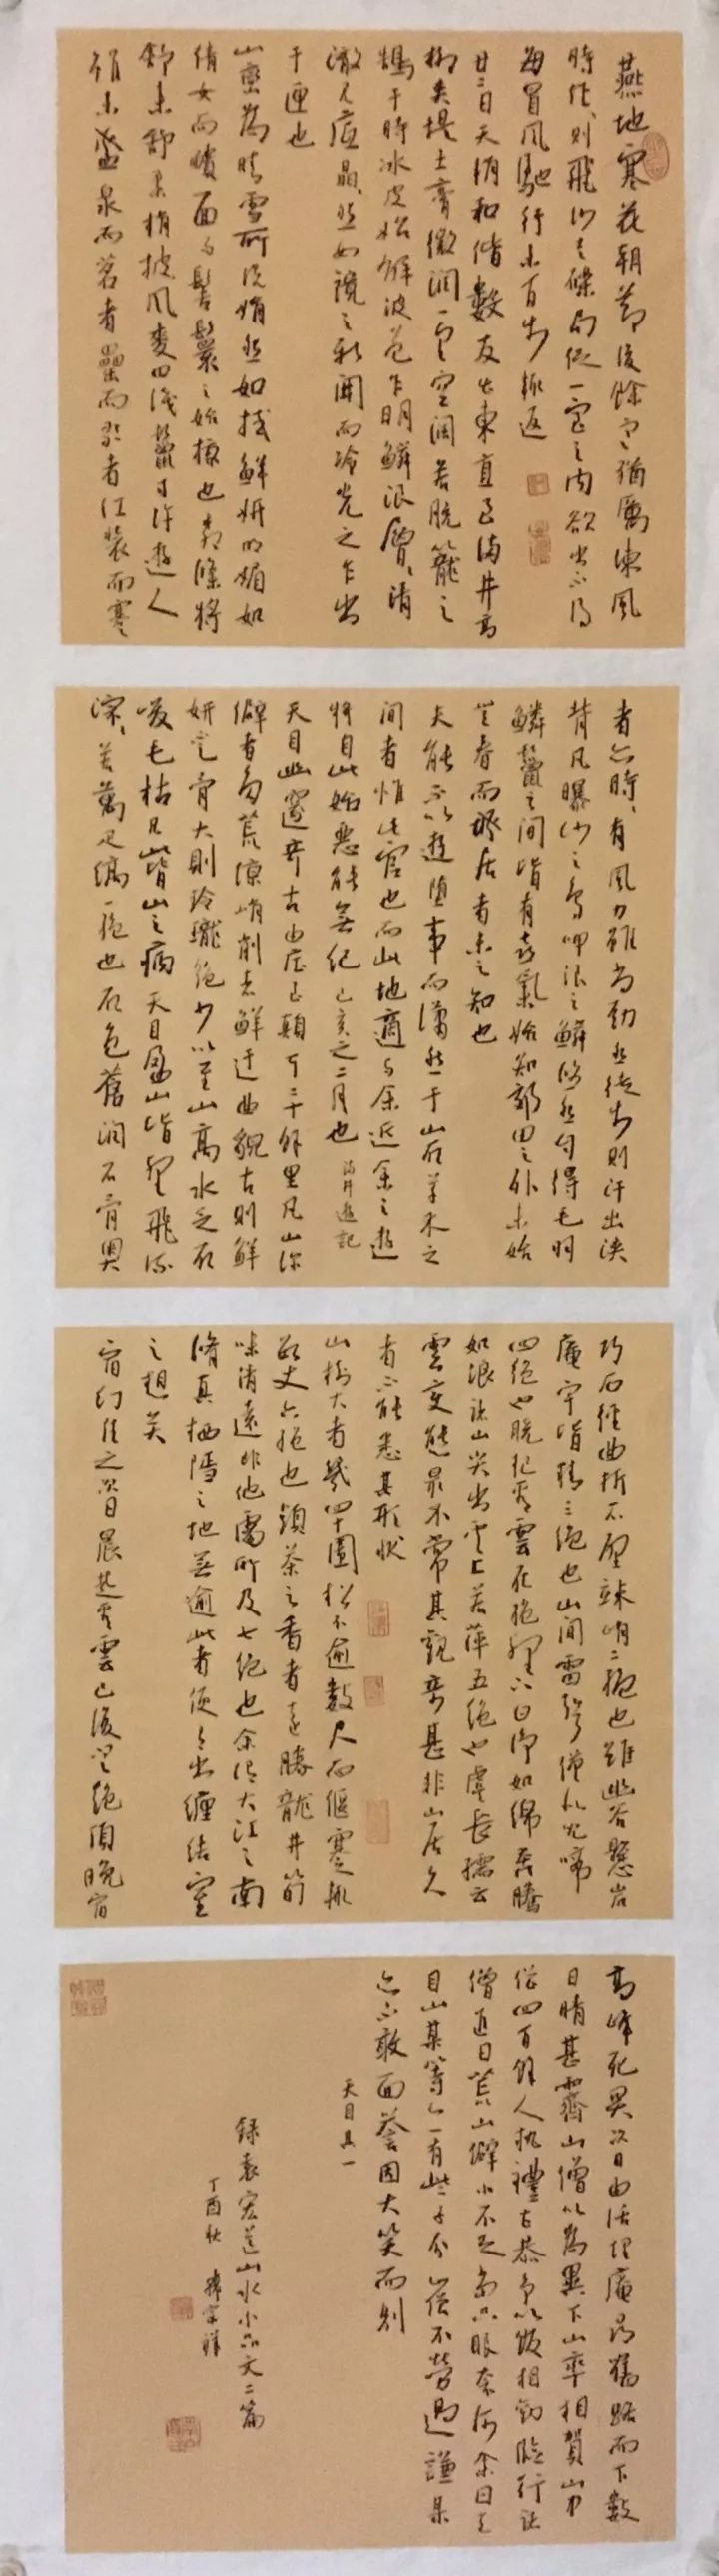 燕地寒花朝節後餘寒猶厲凍風
時作作則飛沙走礫局促一室之內欲出不得
每冒風馳行未百步輒返
廿二日天稍和偕數友出東直至滿井高
柳夾堤土膏微潤一望空闊若脫籠之
鵠于時冰皮始解波色乍明鱗浪層層清
澈見底晶晶然如鏡之新開而冷光之乍出
于匣也
山巒為晴雪所洗娟然如拭鮮妍明媚如
倩女而靧面而髻鬟之始掠也柳條將
舒未舒柔梢披風麥田淺鬣寸許遊人
雖未盛泉而茗者罍而歌者紅裝而蹇
者亦時時有風力雖尚勁然徒步則汗出浹
背凡曝沙之鳥呷浪之鱗悠然自得毛羽
鱗鬣之間皆有喜氣始知郊田之外未始
無春而城居者未之知也
夫能不以遊墮事而瀟然于山石草木之
間者惟此官也而此地適與余近余之遊
將自此始惡能無紀己亥之二月也 滿井遊記
天目幽邃奇古由莊至顛可三十餘里凡山深
僻者多荒涼峭削者鮮迂曲貌古則鮮
妍不足骨大則玲瓏絕少以至山高水乏石
峻毛枯凡此皆山之病天目盈山皆壑飛流
淙淙若萬疋縞一絕也石色蒼潤石骨奧
巧石徑曲折石壁竦峭二絕也雖幽谷懸岩
庵宇皆精三絕也山間雷聲僅如兒啼
四絕也曉起看雲在絕壑下白淨如綿奔騰
如浪諸山尖出雲上若萍五絕也虞長孺云
雲變態最不常其觀奇甚非山居久
者不能悉其形狀
山樹大者幾四十圍松不逾數尺而偃蹇軼
數丈六絕也頭茶之香者遠勝龍井筍
味清遠非他處所及七絕也余謂大江之南
修真棲隱之地無逾此者便有出纏結室
之想矣
宿幻住之次日晨起看雲已後登絕頂晚宿
高峰死關次日由活埋庵尋舊路而下數
日晴甚霽山僧以為異下山率相賀山中
僧四百餘人執禮甚恭爭以飯相勸臨行諸
僧進曰荒山僻小不足當巨眼奈何余曰天
目山某等亦有些子分山僧不勞過謙某
亦不敢面譽因大笑而別
天目其一
錄袁宏道山水小品文二篇
丁酉秋